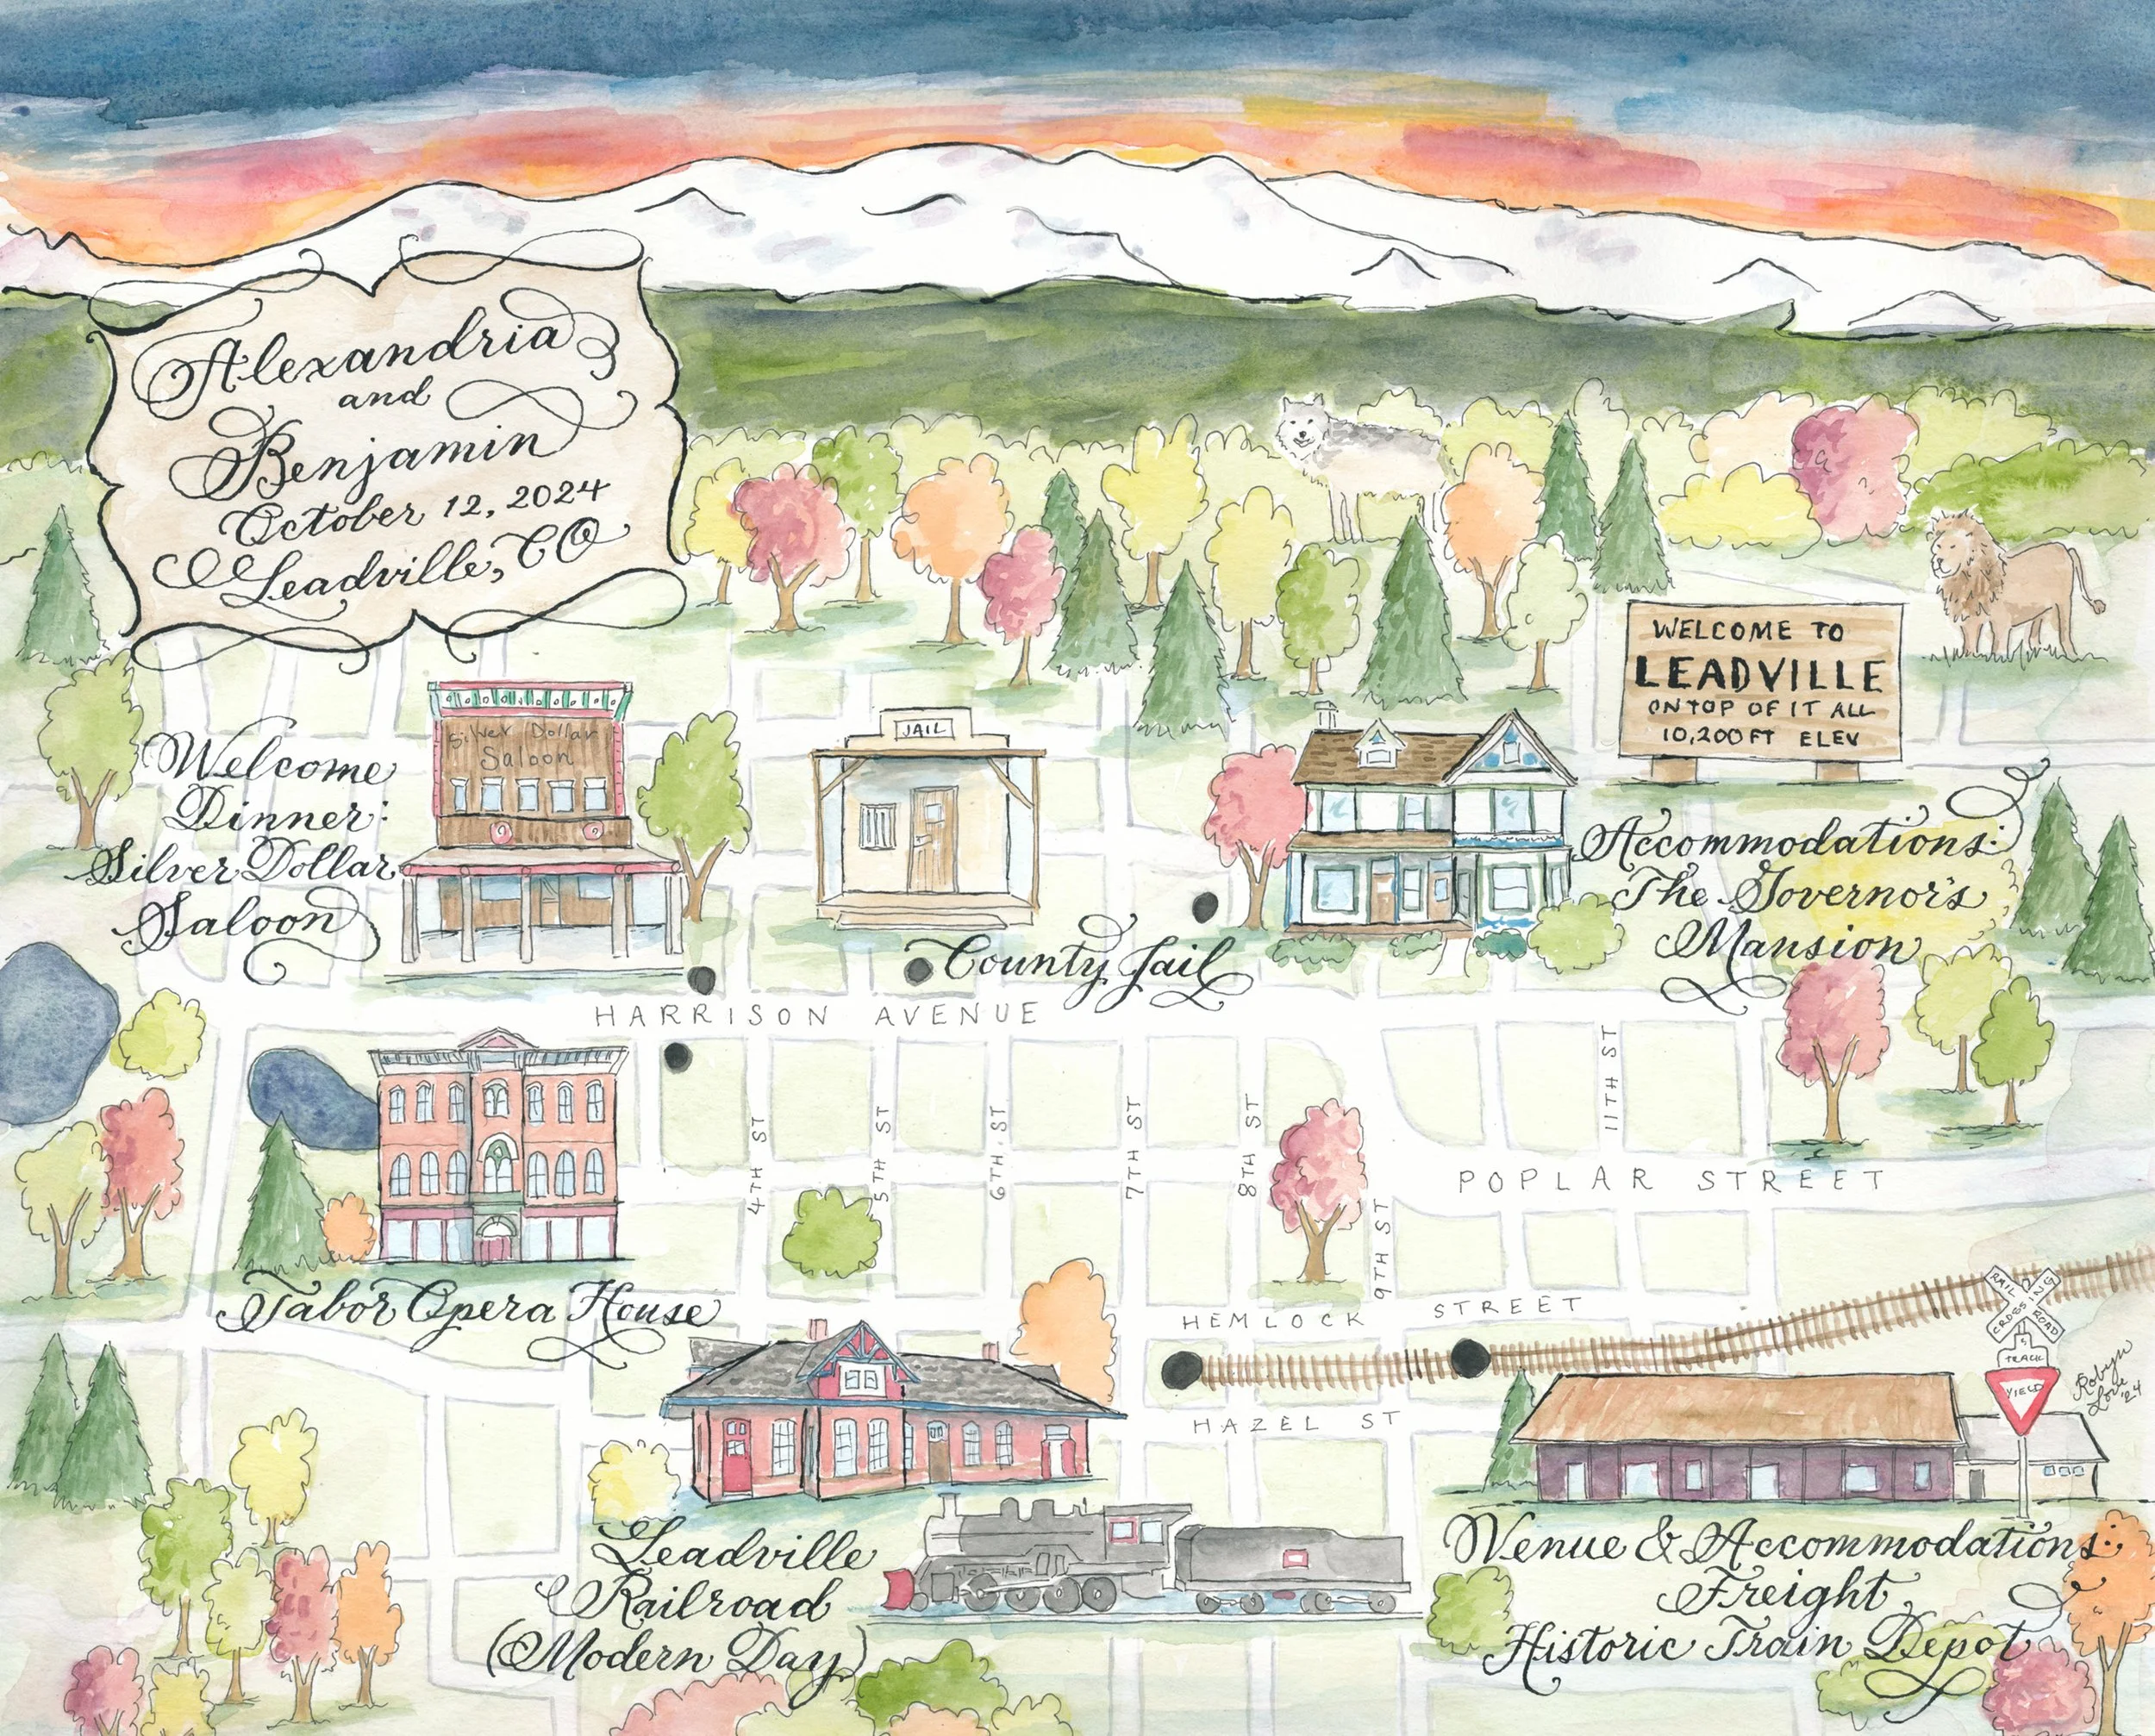 Alexandria
and
Benjamin
October 12, 2024
Leadville, CO
WELCOME TO
LEADVILLE
ON TOP OF IT ALL
10,200 FT ELEV
Welcome
Dinner:
Silver Dollar
Saloon
Silver Dollar
Saloon
JAIL
County Jail
Accommodations:
The Governor's
Mansion
HARRISON AVENUE
4TH ST
5TH ST
6TH ST
7TH ST
8TH ST
9TH ST
11TH ST
POPLAR STREET
Tabor Opera House
HEMLOCK STREET
HAZEL ST
RAIL ROAD
CROSSING
TRACK
YIELD
Robyn
Love
'24
Leadville
Railroad
(Modern Day)
Venue & Accommodations:
Freight
Historic Train Depot